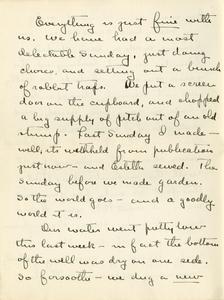 Everything is just fine with
us. We have had a most
delectable Sunday, just doing
chores, and selling out a bunch
of rabbit traps. We put a screen
door on the cupboard, and chopped
a big supply of pitch out of an old
stump. Last Sunday I made –
well, its withheld from publication
just now – and Estella sewed. The
Sunday before we made garden.
So the world goes – and a goodly
world it is.
Our water went putty low
this last week – in fact the bottom
of the well was dry on one side.
So forsooth – we dug a new